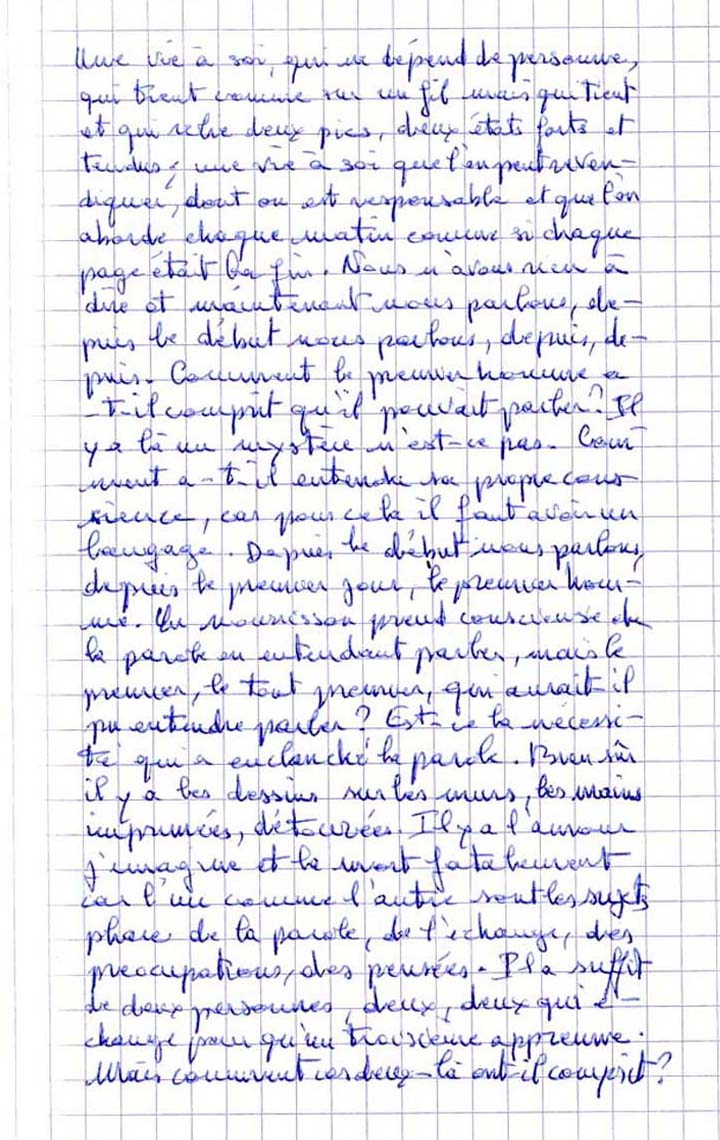 Une vie à soi, qui ne dépend de personne,
qui tient comme sur un fil mais qui tient
et qui relie deux pics, deux états forts et
tendus ; une vie à soi que l'on peut reven-
diquer, dont on est responsable et que l'on
aborde chaque matin comme si chaque
page était la fin. Nous n'avons rien à
dire et maintenant nous parlons, de-
puis le début nous parlons, depuis, de-
puis. Comment le premier homme a
-t-il comprit qu'il pouvait parler? Il
y a là un mystère n'est-ce pas. Com
ment a-t-il entendu sa propre cons
cience, car pour cela il faut avoir un
langage. Depuis le début nous parlons,
depuis le premier jour, le premier hom-
me. Un nourisson prend conscience de
la parole en entendant parler, mais le
premier, le tout premier, qui aurait-il
pu entendre parler? Est-ce la nécessi-
té qui a enclanché la parole. Bien sûr
il y a les dessins sur les murs, les mains
imprimées, détourées. Il y a l'amour
j'imagine et la mort fatalement
car l'un comme l'autre sont les sujets
phare de la parole, de l'échange, des
préocupations, des pensées. Il a suffit
de deux personnes, deux, deux qui é-
change pour qu'un troisième apprenne.
Mais comment ces deux-là ont-il comprit?